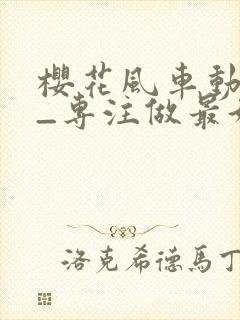 櫻花風車動
_專注做最
洛克希德馬丁